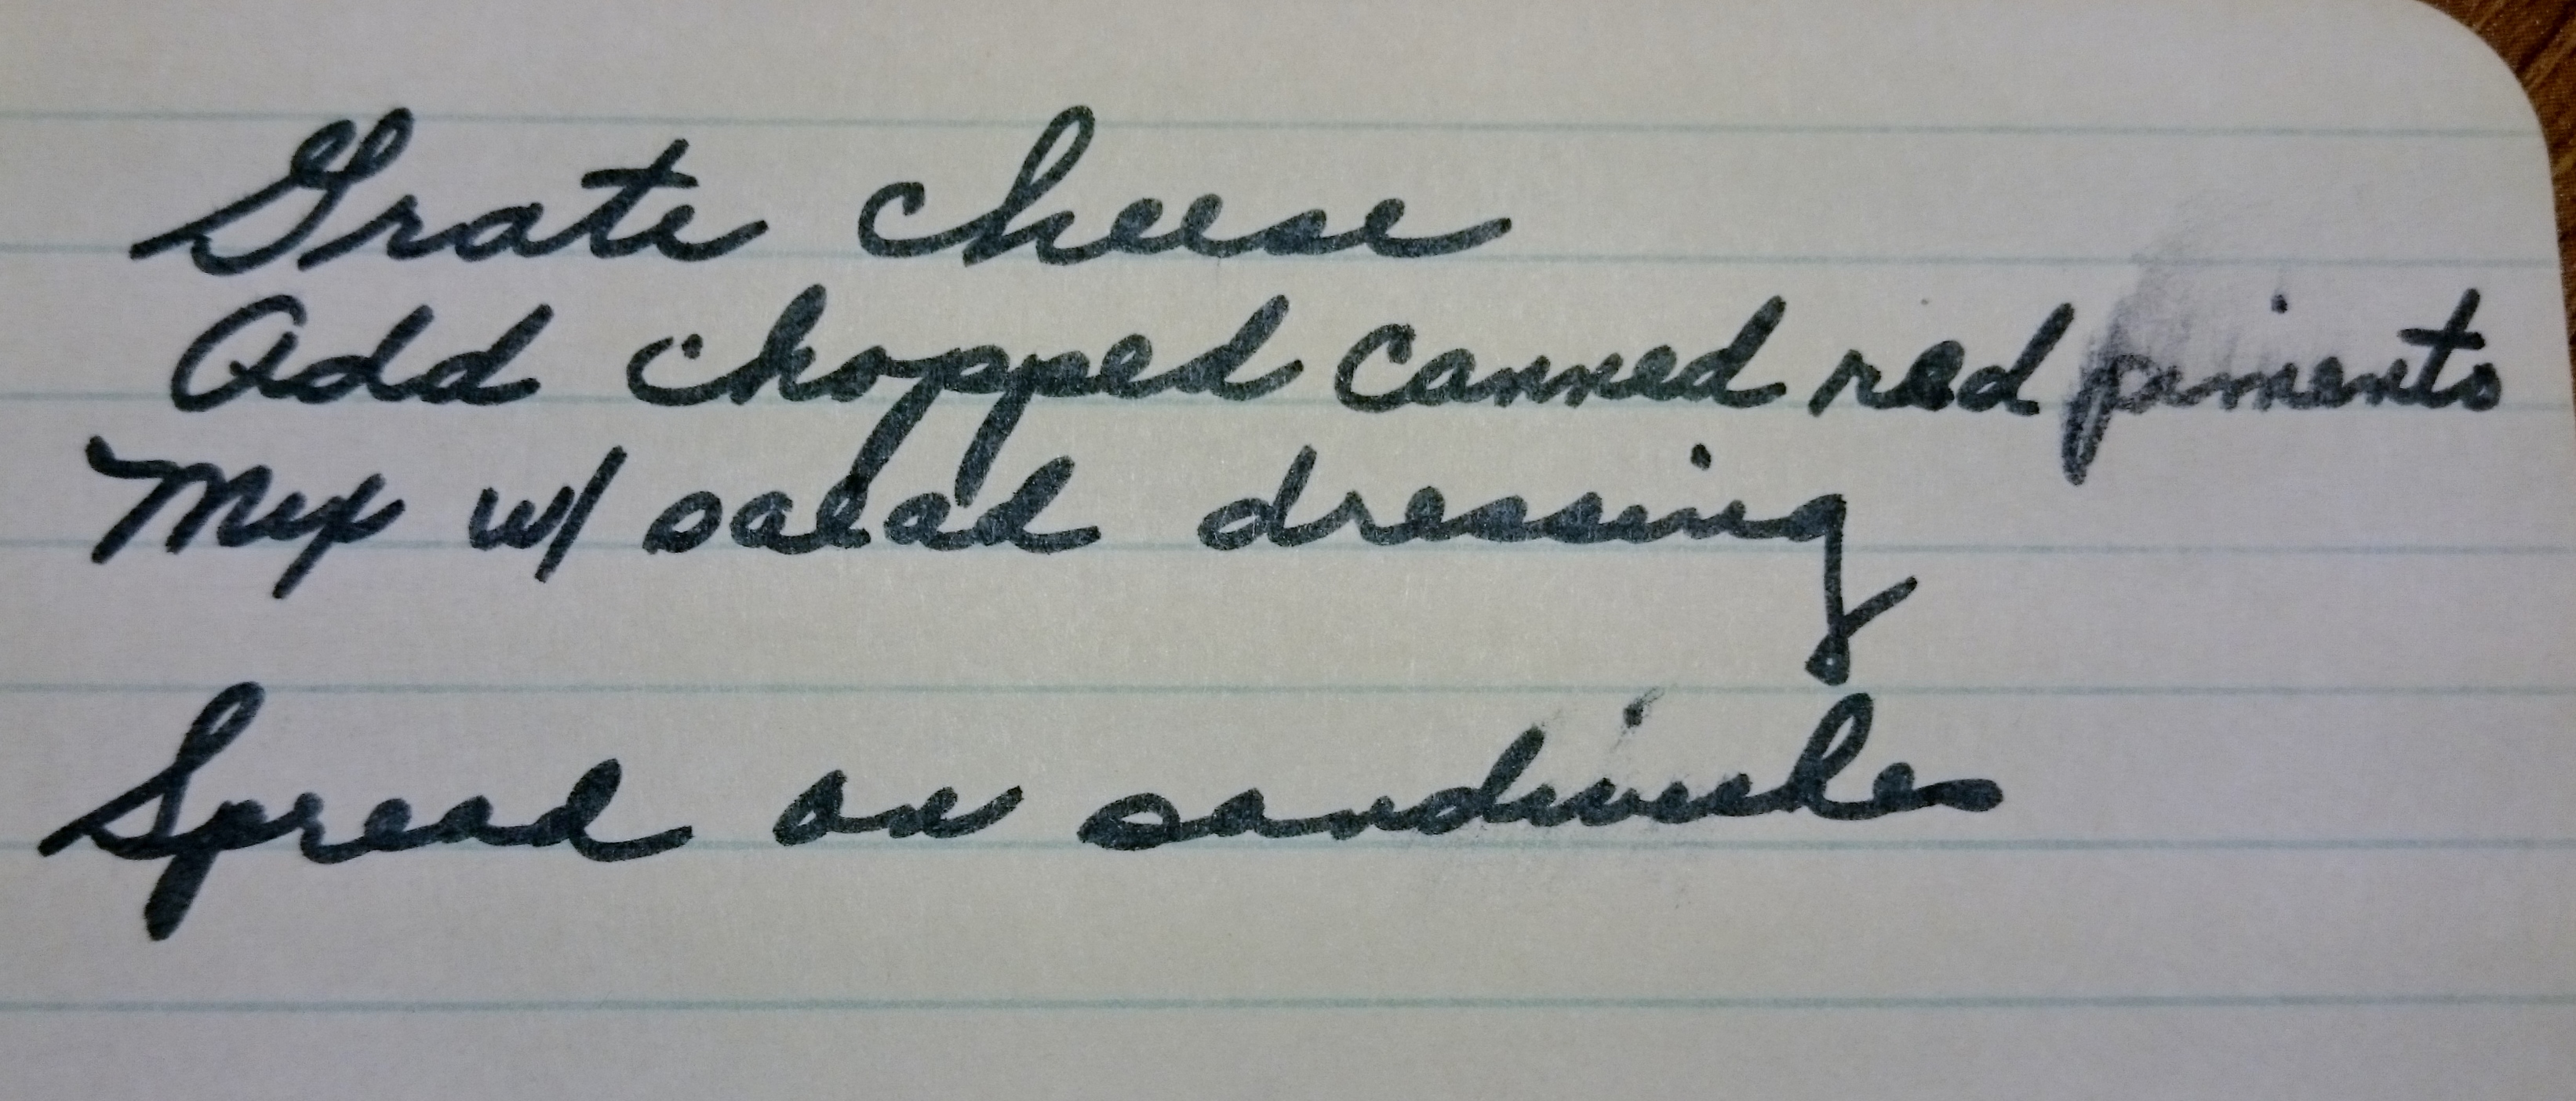 Grate cheese
Add chopped canned red pimento
Mix w/ salad dressing
Spread on sandwiches